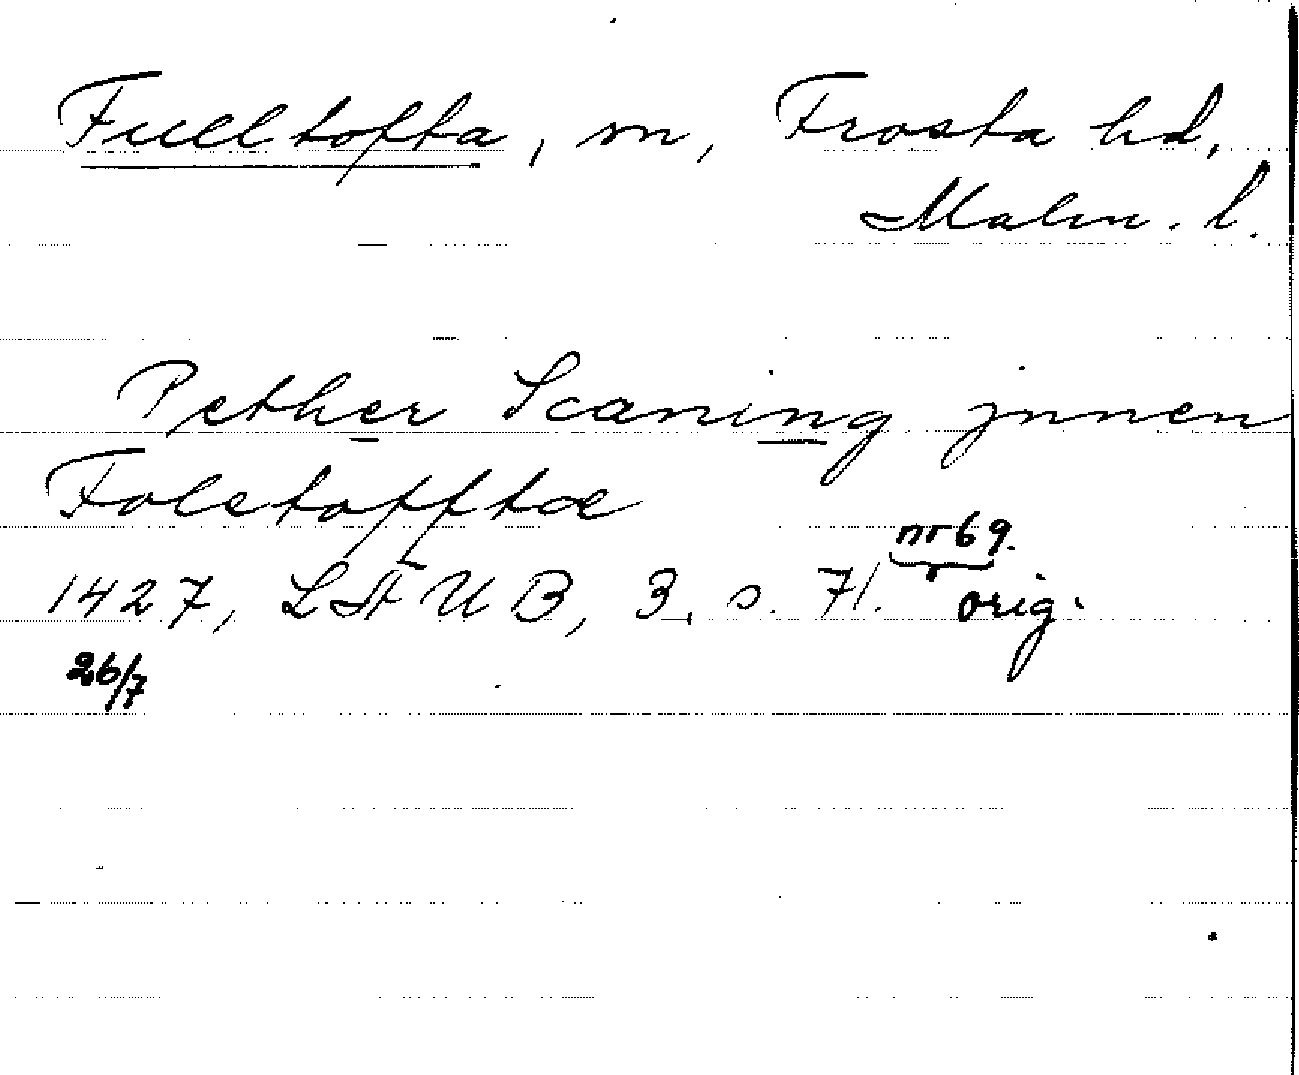 Fulltofta, sn, Frosta hd,
Malm. l.
Pether Scaning jnnen
Foletofftæ
nr 69.
1427, LÄUB, 3, s. 71. orig.
26/7